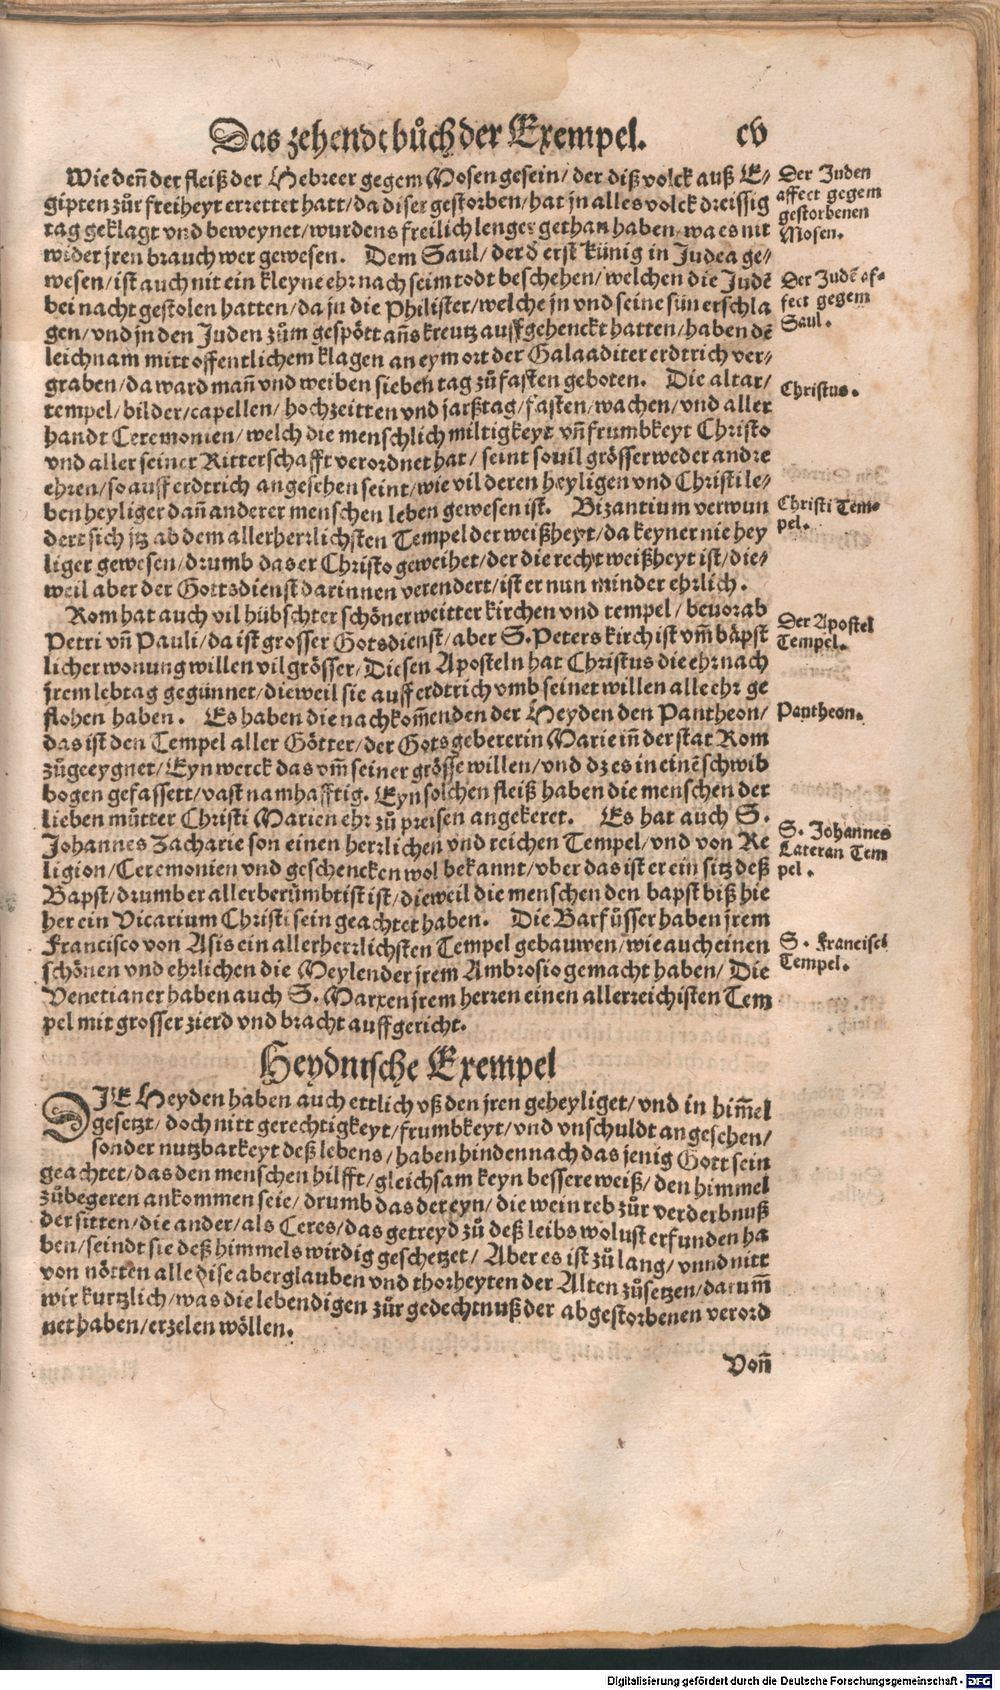 Das zehendt bůch der Exempel. cv
Wie deñ der fleiß der Hebreer gegem Mosen gesein/ der diß volck auß E/
gipten zůr freiheyt errettet hatt/ da diser gestorben/ hat jn alles volck dreissig
tag geklagt vnd beweynet/ wurdens freilich lenger gethan haben/ wa es nit
wider jren brauch wer gewesen. Dem Saul/ der d erst künig in Judea ge/
wesen/ ist auch nit ein kleyne ehr nach seim todt beschehen/ welchen die Judẽ
bei nacht gestolen hatten/ da jn die Philister/ welche jn vnd seine sün erschla
gen/ vnd jn den Juden zům gespött añs kreutz auffgehenckt hatten/ haben dẽ
leichnam mitt offentlichem klagen an eym ort der Galaaditer erdtrich ver/
graben/ da ward mañ vnd weiben sieben tag zů fasten geboten. Die altar/
tempel/ bilder/ capellen/ hochzeitten vnd jarßtag/ fasten/ wachen/ vnd aller
handt Ceremonien/ welch die menschlich miltigkeyt vñ frumbkeyt Christo
vnd aller seiner Ritterschafft verordnet hat/ seint souil grösser weder andre
ehren/ so auff erdtrich angesehen seint/ wie vil deren heyligen vnd Christi le/
ben heyliger dañ anderer menschen leben gewesen ist. Bizantium verwun
dert sich jtz ab dem allerherrlichsten Tempel der weißheyt/ da keyner nie hey
liger gewesen/ drumb das er Christo geweihet/ der die recht weißheyt ist/ die/
weil aber der Gottsdienst darinnen verendert/ ist er nun minder ehrlich.
Rom hat auch vil hübschter schöner weitter kirchen vnd tempel/ beuorab
Petri vñ Pauli/ da ist grosser Gotsdienst/ aber S. Peters kirch ist vm̃ bäpst
licher wonung willen vil grösser/ Diesen Aposteln hat Christus die ehr nach
jrem lebtag gegünnet/ dieweil sie auff erdtrich vmb seinet willen alle ehr ge
flohen haben. Es haben die nachkom̃enden der Heyden den Pantheon/
das ist den Tempel aller Götter/ der Gotsgebererin Marie iñ der stat Rom
zůgeeygnet/ Eyn werck das vm̃ seiner grösse willen/ vnd dz es in einẽ schwib
bogen gefassett/ vast namhafftig. Eyn solchen fleiß haben die menschen der
lieben můtter Christi Marien ehr zů preisen angekeret. Es hat auch S.
Johannes Zacharie son einen herrlichen vnd reichen Tempel/ vnd von Re
ligion/ Ceremonien vnd geschencken wol bekannt/ vber das ist er ein sitz deß
Bapst/ drumb er allerberümbtist ist/ dieweil die menschen den bapst biß hie
her ein Vicarium Christi sein geachtet haben. Die Barfüsser haben jrem
Francisco von Asis ein allerherrlichsten Tempel gebauwen/ wie auch einen
schönen vnd ehrlichen die Meylender jrem Ambrosio gemacht haben/ Die
Venetianer haben auch S. Marxen jrem herren einen allerreichisten Tem
pel mit grosser zierd vnd bracht auffgericht.
Der Juden
affect gegem
gestorbenen
Mosen.
Der Judẽ af/
fect gegem
Saul.
Christus.
Christi Tem/
pel.
Der Apostel
Tempel.
Pantheon.
S. Johannes
Lateran Tem
pel.
S. Francisci
Tempel.
Heydnische Exempel
DIE Heyden haben auch ettlich vß den jren geheyliget/ vnd in him̃el
gesetzt/ doch nitt gerechtigkeyt/ frumbkeyt/ vnd vnschuldt angesehen/
sonder nutzbarkeyt deß lebens/ haben hindennach das jenig Gott sein
geachtet/ das den menschen hilfft/ gleichsam keyn bessere weiß/ den himmel
zůbegeren ankommen seie/ drumb das der eyn/ die weinreb zůr verderbnuß
der sitten/ die ander/ als Ceres/ das getreyd zů deß leibs wolust erfunden ha
ben/ seindt sie deß himmels wirdig geschetzet/ Aber es ist zů lang/ vnnd nitt
von nötten alle dise aberglauben vnd thorheyten der Alten zůsetzen/ darum̃
wir kurtzlich/ was die lebendigen zůr gedechtnuß der abgestorbenen verord
net haben/ erzelen wöllen.
Voñ
Digitalisierung gefördert durch die Deutsche Forschungsgemeinschaft - DFG